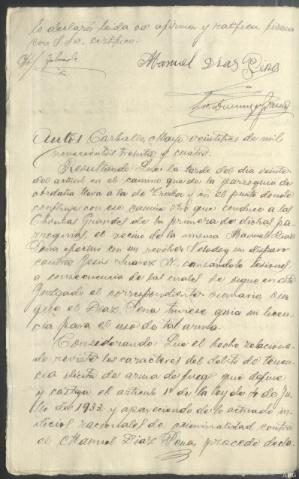 le declaró leída se afirma y ratifica firma
con S.S. certifico.
Manuel Diaz Pena
Auto = Carballo, Mayo veintitres de mil
novecientos treinta y cuatro.
Resultando: Que la tarde del día veinte
del actual en el camino que de la parroquia de
lleva a la de en el punto donde
con ese camino otro que conduce a las
Grandes de la primera de dichas pa-
rroquias, el vecino de la misma Manuel Diaz
Pena efectuó con un revolver un disparo
contra Jesús Suarez causandole lesiones
a consecuencia de las cuales se sigue en este
Juzgado el correspondiente sumario sin
que el Diaz Pena tuviese guia ni licen
cia para el uso de tal arma.
Considerando: Que el hecho relaciona-
do reviste los caracteres del delito de tenen-
cia ilicita de arma de fuego que define
y castiga el articulo 1º de la ley de 4 de Ju-
lio del 1933 y apareciendo de lo actuado in-
dicios racionales de criminalidad contra
el Manuel Diaz Pena, procede decla-